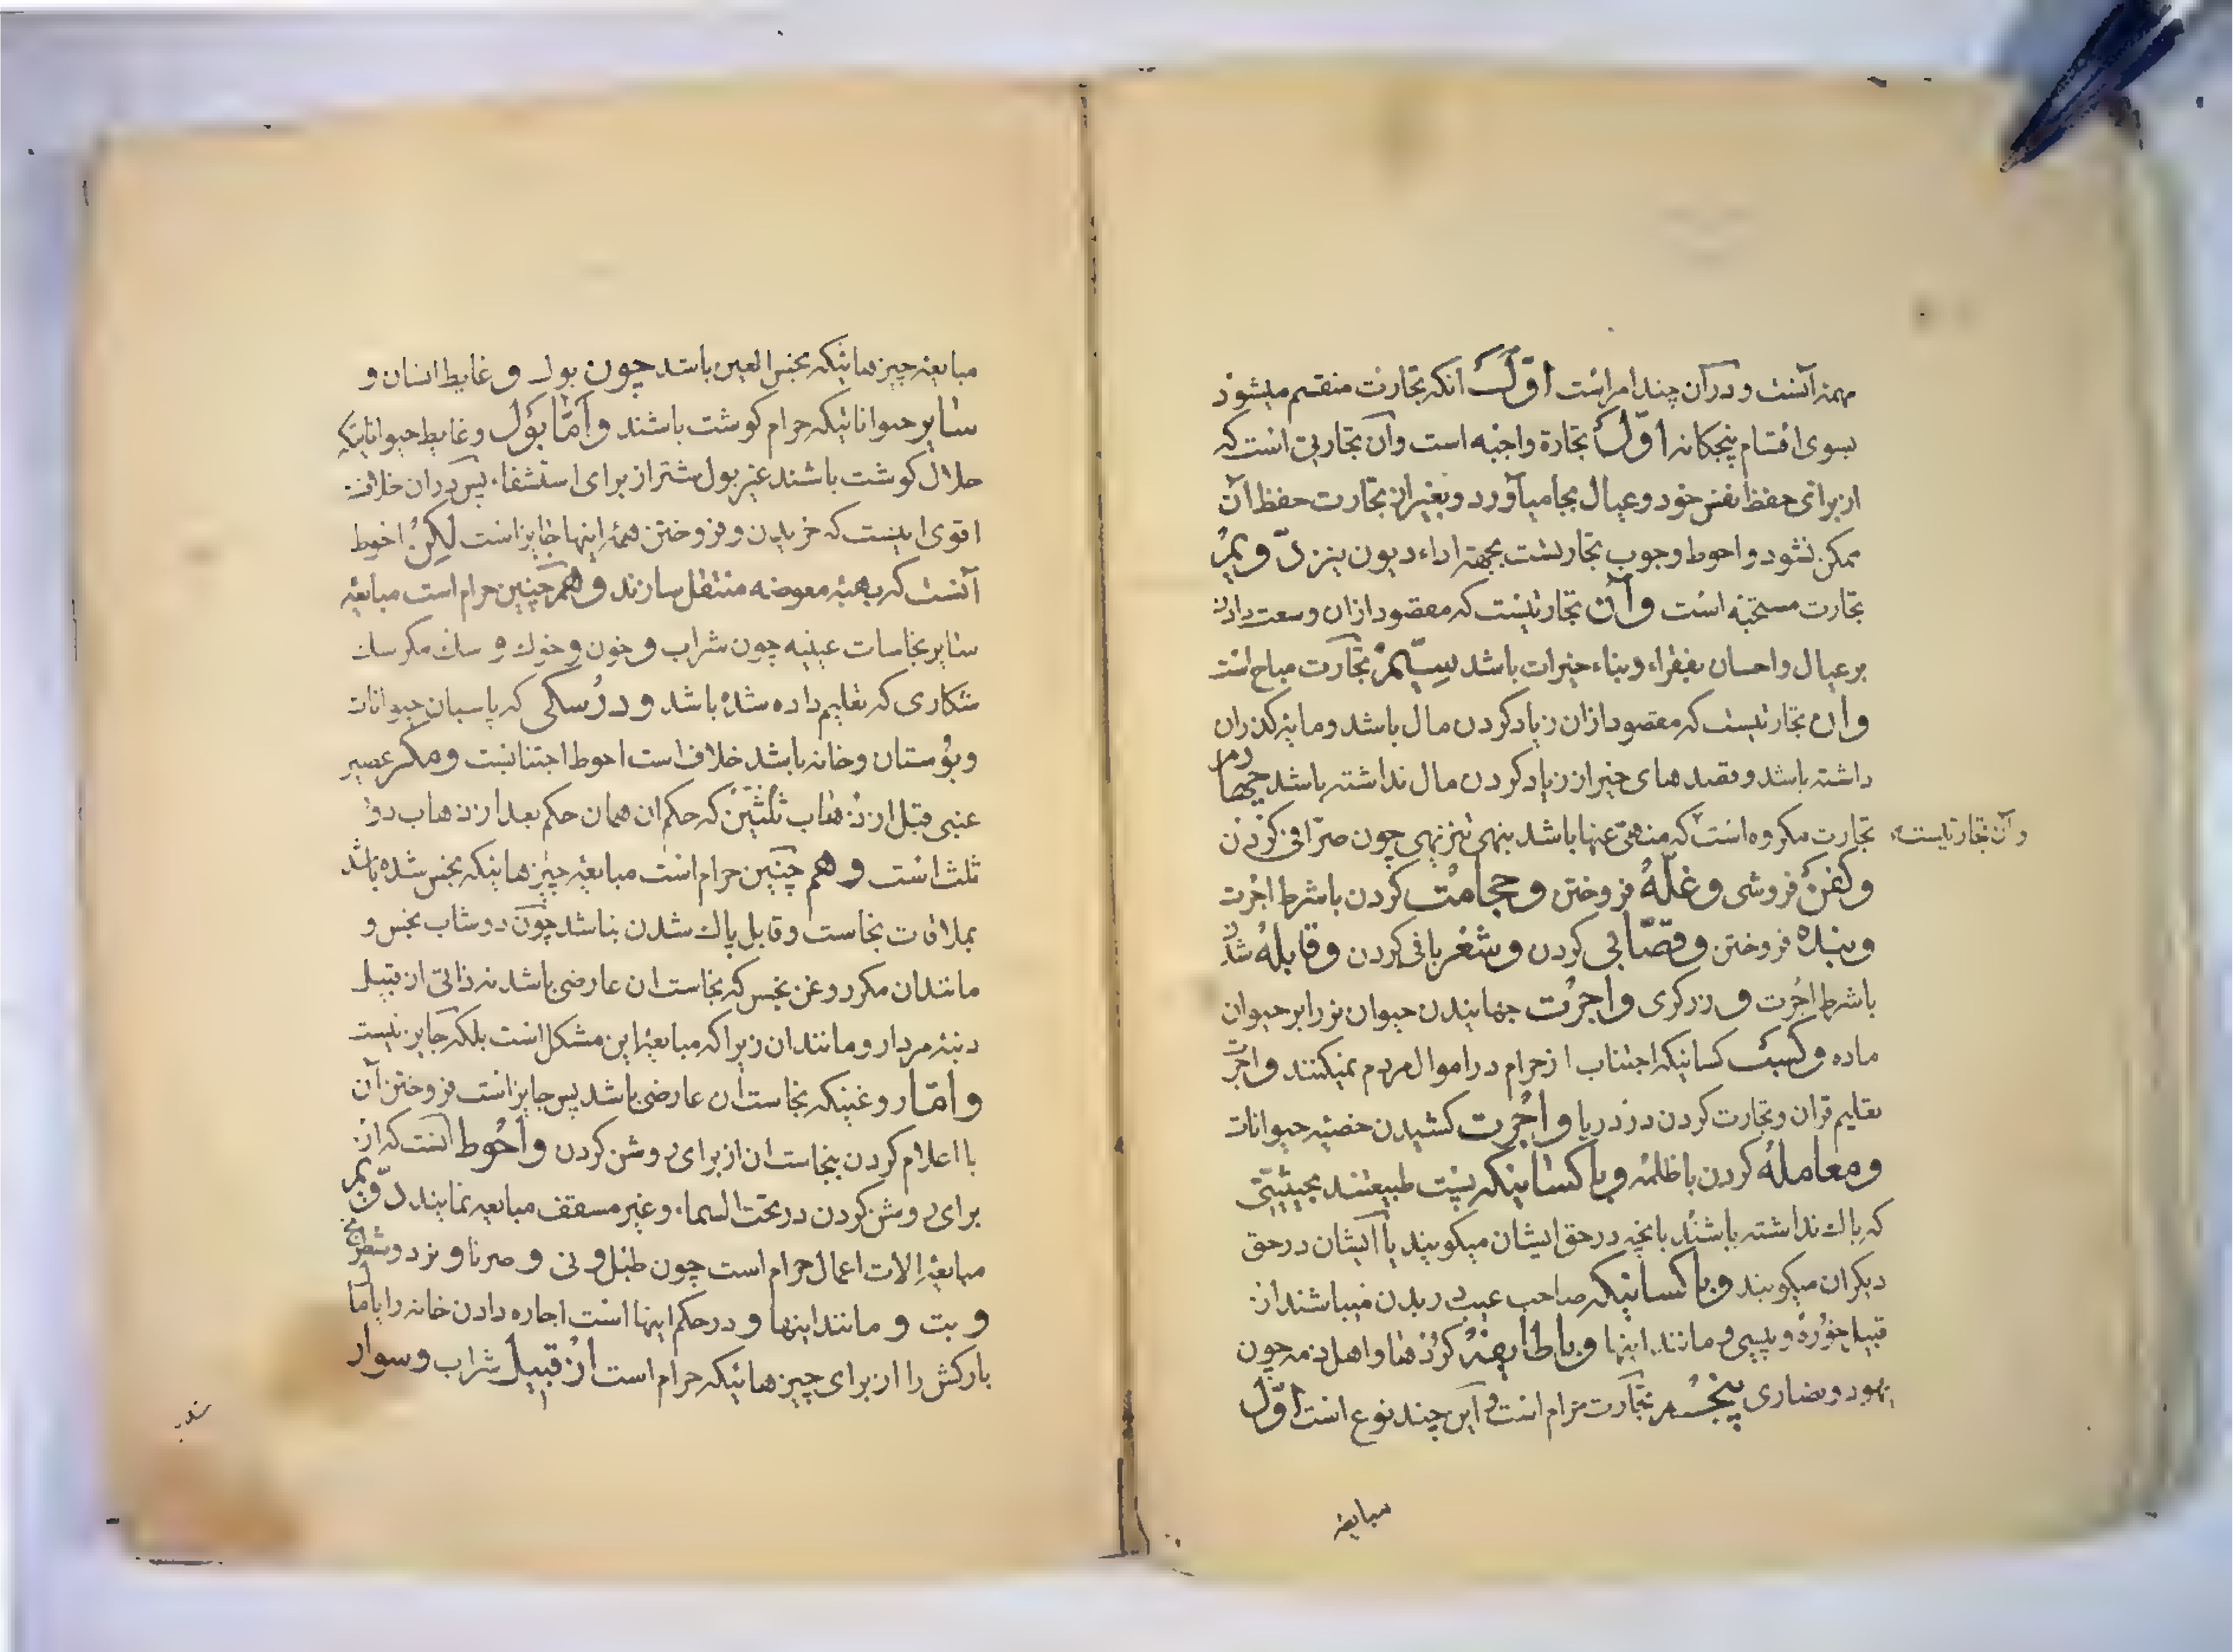 مهمه آنست و در آن چند امر است اوّل انکه تجارت منقسم میشود
بسوی اقسام پنجکانه اوّل تجارة واجبه است و آن تجارتی است که
از برای حفظ نفس خود و عیال بجا میآورد و بغیر از تجارت حفظ آن
ممکن نشود و احوط وجوب تجارتست بجهة اداء دیون نیز دوّیم
تجارت مستحبّه است و آن تجارتیست که مقصود ازان وسعت دادن
بر عیال و احسان بفقراء و بناء خیرات باشد سیّم تجارت مباح است
و ان تجارتیست که مقصود ازان زیاد کردن مال باشد و مایه کذران
داشته باشد و قصدهای خیر از زیاد کردن مال نداشته باشد چهارم
تجارت مکروه است که منهیّ عنها باشد بنهی تنزیهی چون صرّافی کردن
و آن تجارتیست
و کفن فروشی و غلّه فروختن و حجامت کردن با شرط اجرت
و بنده فروختن و قصّابی کردن و شعر بافی کردن و قابله شدن
با شرط اجرت و زرکری و اجرت جهانیدن حیوان نر را بر حیوان
ماده و کسب کسانیکه اجتناب از حرام در اموال مردم نمیکنند و اجرت
تعلیم قران و تجارت کردن در دریا و اجرت کشیدن خصیه حیوانات
و معامله کردن با ظلمه و با کسانیکه پست طبیعتند بحیثیّتی
که باک نداشته باشند بانچه در حق ایشان میکویند یا ایشان در حق
دیکران میکویند و با کسانیکه صاحب عیب در بدن میباشند از
قبیل خوره و پیسی و مانند اینها و با طایفه کردها و اهل ذمه چون
یهود و نصاری پنجم تجارت حرام است و این چند نوع است اوّل
مبایعه
مبایعه چیزهائیکه نجس العین باشد چون بول و غایط انسان و
سایر حیواناتیکه حرام کوشت باشند و امّا بول و غایط حیواناتیکه
حلال کوشت باشند غیر بول شتر از برای استشفاء پس در ان خلافست
اقوی اینست که خریدن و فروختن همهٔ اینها جایز است لیکن احوط
آنست که بهبهٔ معوضه منتقل سازند و همچنین حرام است مبایعه
سایر نجاسات عینیه چون شراب و خون و خوك و سك مکر سك
شکاری که تعلیم داده شده باشد و در سکی که پاسبان حیوانات
و بوستان و خانه باشد خلاف است احوط اجتنابست و مکر عصیر
عنبی قبل از ذهاب ثلثین که حکم ان همان حکم بعد از ذهاب دو
ثلث است و همچنین حرام است مبایعهٔ چیزهائیکه نجس شده باشد
بملاقات نجاست و قابل پاك شدن نباشد چون دوشاب نجس و
مانند ان مکر روغن نجس که نجاست ان عارضی باشد نه ذاتی از قبیل
دنبه مردار و مانند ان زیرا که مبایعهٔ این مشکل است بلکه جایز نیست
و امّا روغنیکه نجاست ان عارضی باشد پس جایز است فروختن آن
با اعلام کردن بنجاست ان از برای روشن کردن و احوط آنست که از
برای روشن کردن در تحت السماء و غیر مسقف مبایعه نمایند دوّیم
مبایعهٔ الات اعمال حرام است چون طبل و نی و صرنا و نرد و شطرنج
و بت و مانند اینها و در حکم اینها است اجاره دادن خانه را یا مال
بارکش را از برای چیزهائیکه حرام است از قبیل شراب و سوار